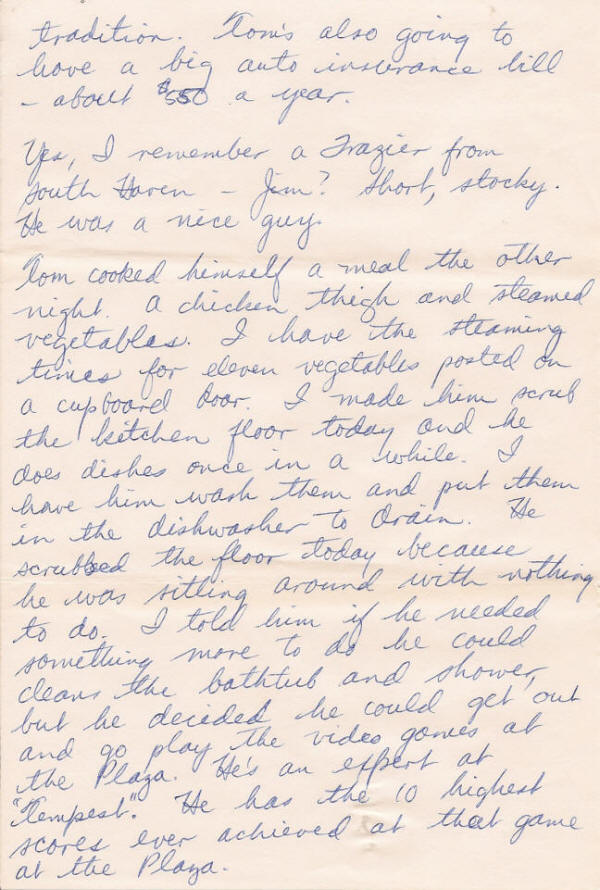 tradition. Tom's also going to
have a big auto insurance bill
- about $550 a year.
Yes, I remember a Frazier from
South Haven - Jim? Short, stocky.
He was a nice guy.
Tom cooked himself a meal the other
night. A chicken thigh and steamed
vegetables. I have the steaming
times for eleven vegetables posted on
a cupboard door. I made him scrub
the kitchen floor today and he
does dishes once in a while. I
have him wash them and put them
in the dishwasher to drain. He
scrubbed the floor today because
he was sitting around with nothing
to do. I told him if he needed
something more to do he could
clean the bathtub and shower,
but he decided he could get out
and go play the video games at
the Plaza. He's an expert at
"Tempest". He has the 10 highest
scores ever achieved at that game
at the Plaza.